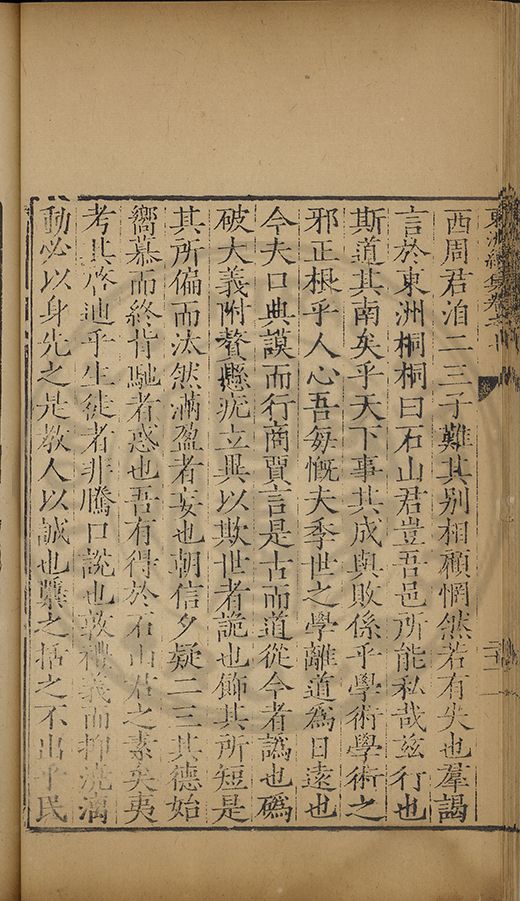 西周君洎二三子難其別相顧惘然若有失也羣謁
言於東洲桐桐曰石山君豈吾邑所能私哉兹行也
斯道其南矣乎天下事其成與敗係乎學術學術之
邪正根乎人心吾每慨夫季世之學離道為日遠也
今夫口典謨而行商賈言是古而道從今者譌也碼
破大義附贅懸疣立異以欺世者詭也飾其所短是
其所偏而汰然滿盈者妄也朝信夕疑二三其德始
嚮慕而終背馳者惑也吾有得於石山君之素矣夷
考其啓迪乎生徒者非騰口說也敦禮義而抑澆漓
動必以身先之是教人以誠也櫽之括之不出乎民